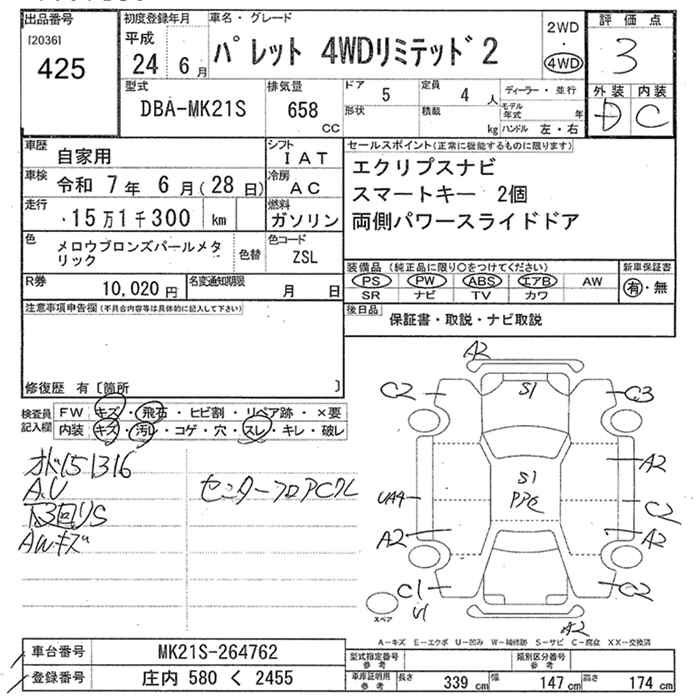 出品番号
[2036]
425
初度登録年月
平成
24 6月
車名・グレード
パレット 4WDリミテッド2
2WD
・
4WD
評価点
3
外装 内装
D C
型式
DBA-MK21S
排気量
658
CC
ドア 5
形状
定員 4 人
積載 kg
ディーラー・並行
モデル年式 年
ハンドル 左・右
車歴 自家用
シフト IAT
車検 令和 7年 6月(28日)
冷房 AC
走行 ・15万1千300 km
燃料 ガソリン
色 メロウブロンズパールメタリック
色替
色コード ZSL
セールスポイント(正常に機能するものに限ります)
エクリプスナビ
スマートキー 2個
両側パワースライドドア
装備品 (純正品に限り○をつけてください)
PS PW ABS エアB AW
SR ナビ TV カワ
新車保証書
有・無
R券 10,020円
名変通知期限 月 日
後日品 保証書・取説・ナビ取説
注意事項申告欄(不具合内容等は具体的に記入して下さい)
修復歴 有 [箇所 ]
検査員記入欄
FW キズ・飛石・ヒビ割・リペア跡・×要
内装 キズ・汚レ・コゲ・穴・スレ・キレ・破レ
オド151316
A.U
下3回りS
AWキズ
センターフロアCクレ
A2
S1
C2
C3
A2
S1
PPC
UA4
C2
A2
A2
C1
U1
C2
A2
スペア
A-キズ E-エクボ U-凹み W-補修跡 S-サビ C-腐食 XX-交換済
車台番号 MK21S-264762
登録番号 庄内 580 く 2455
型式指定番号 参考
類別区分番号 参考
車庫証明用 参考
長さ 339 cm 幅 147 cm 高さ 174 cm